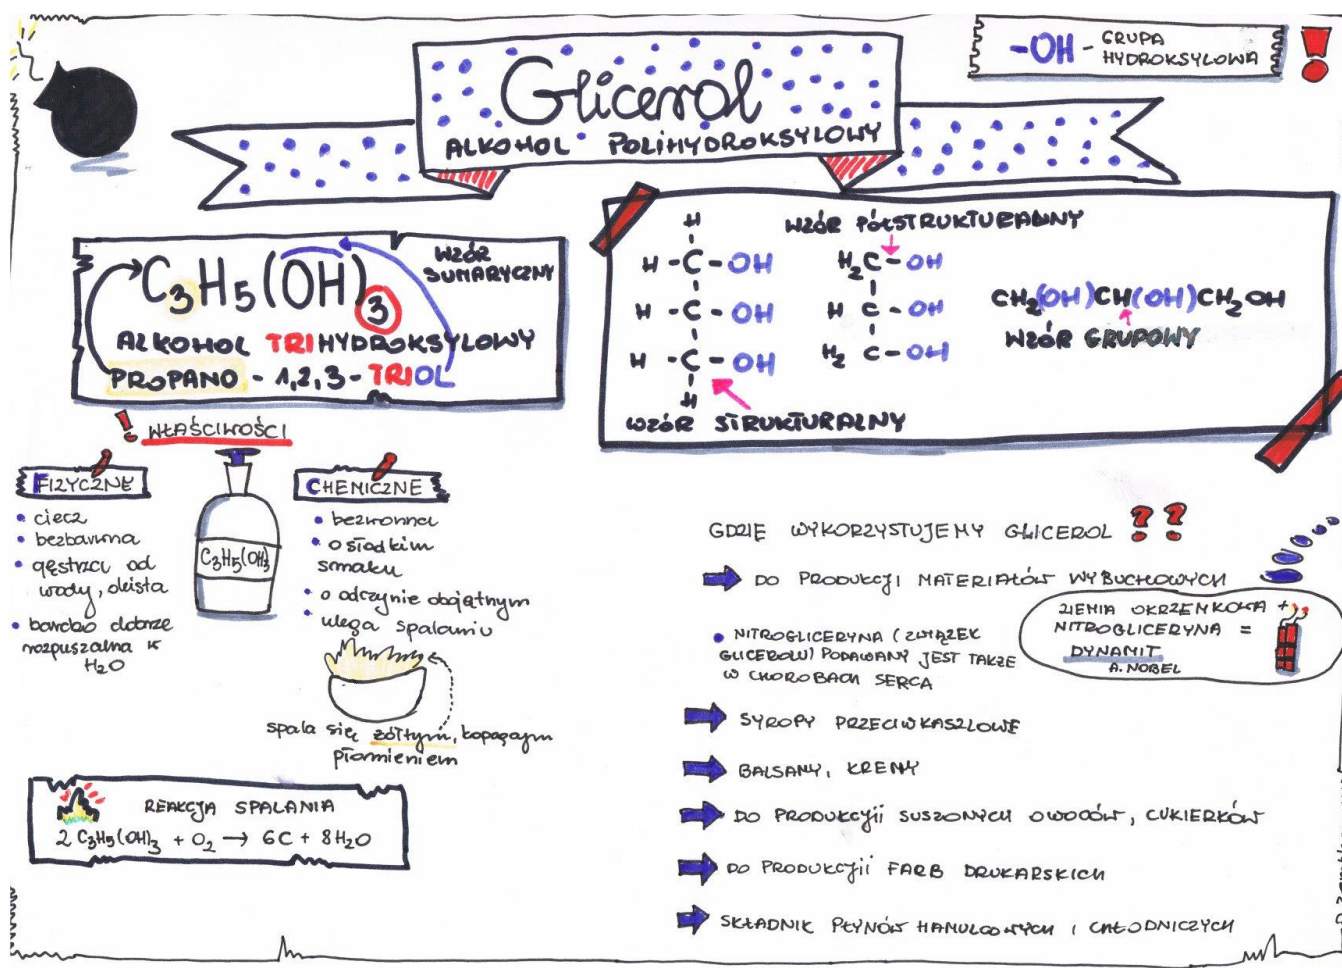 Glicerol
ALKOHOL POLIHYDROKSYLOWY
-OH - GRUPA
HYDROKSYLOWA
C3H5(OH)3
WZÓR
SUMARYCZNY
ALKOHOL TRIHYDROKSYLOWY
PROPANO - 1,2,3 - TRIOL
H
H - C - OH
H - C - OH
H - C - OH
H
WZÓR STRUKTURALNY
WZÓR PÓŁSTRUKTURALNY
H2C - OH
HC - OH
H2 C - OH
CH2(OH)CH(OH)CH2OH
WZÓR GRUPOWY
! WŁAŚCIWOŚCI
FIZYCZNE
• ciecz
• bezbarwna
• gęstsza od
wody, oleista
• bardzo dobrze
rozpuszalna w
H2O
C3H5(OH)3
CHEMICZNE
• bezwonna
• o słodkim
smaku
• o odczynie obojętnym
• ulega spalaniu
spala się żółtym, kopącym
płomieniem
REAKCJA SPALANIA
2 C3H5(OH)3 + O2 → 6C + 8H2O
GDZIE WYKORZYSTUJEMY GLICEROL ??
DO PRODUKCJI MATERIAŁÓW WYBUCHOWYCH
• NITROGLICERYNA (ZWIĄZEK
GLICEROLU) PODAWANY JEST TAKŻE
W CHOROBACH SERCA
ZIEMIA OKRZEMKOWA +
NITROGLICERYNA =
DYNAMIT
A. NOBEL
SYROPY PRZECIWKASZLOWE
BALSAMY, KREMY
DO PRODUKCJII SUSZONYCH OWOCÓW, CUKIERKÓW
DO PRODUKCJII FARB DRUKARSKICH
SKŁADNIK PŁYNÓW HAMULCOWYCH I CHŁODNICZYCH